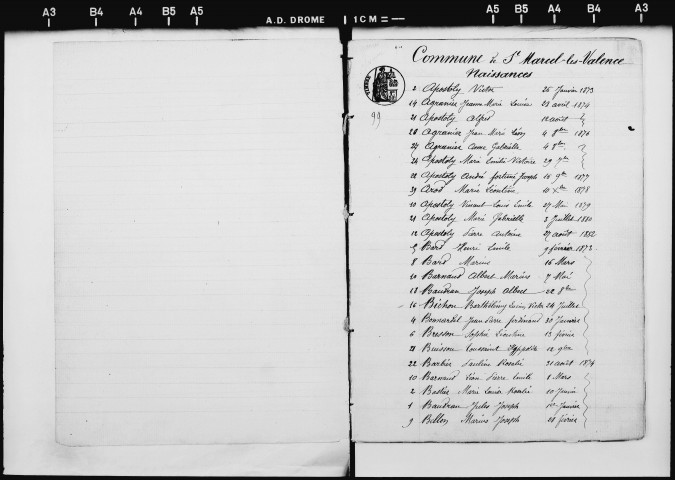 A3 B4 A4 B5 A5 A.D. DROME 1CM = A5 B5 A4 B4 A3
Commune de St Marcel-les-Valence
Naissances
2 Apostoly Victor 25 Janvier 1873
14 Agranier Jeanne Marie Louise 23 avril 1874
21 Apostoly Alfred 12 août
28 Agranier Jean Marie Léon 4 8bre 1876
27 Agranier Anne Gabrielle 4 8bre
24 Apostoly Marie Emilie Victoire 29 7bre
22 Apostoly André fortuné Joseph 18 9bre 1877
39 Marie Léontine 10 Xbre 1878
10 Apostoly Vincent Louis Emile 27 Mai 1879
21 Apostoly Marie Gabrielle 3 Juillet 1880
12 Apostoly Pierre Antoine 27 août 1882
5 Bard Henri Emile 9 février 1873
8 Bard Marine 16 Mars
10 Barnaud Albert Marius 7 Mai
18 Baudran Joseph Albert 22 8bre
16 Bichon Barthélémy Victor 24 Juillet
4 Bonnardel Jean Pierre ferdinand 30 Janvier
6 Bresson Sophie Léontine 13 février
21 Buisson Toussaint Hyppolite 12 9bre
22 Barbier Pauline Rosalie 31 août 1874
10 Barnaud Léon Pierre Emile 8 Mars
2 Marie Louise Rosalie 10 Janvier
1 Baudran Jules Joseph 1er Janvier
9 Billon Marius Joseph 28 février
99